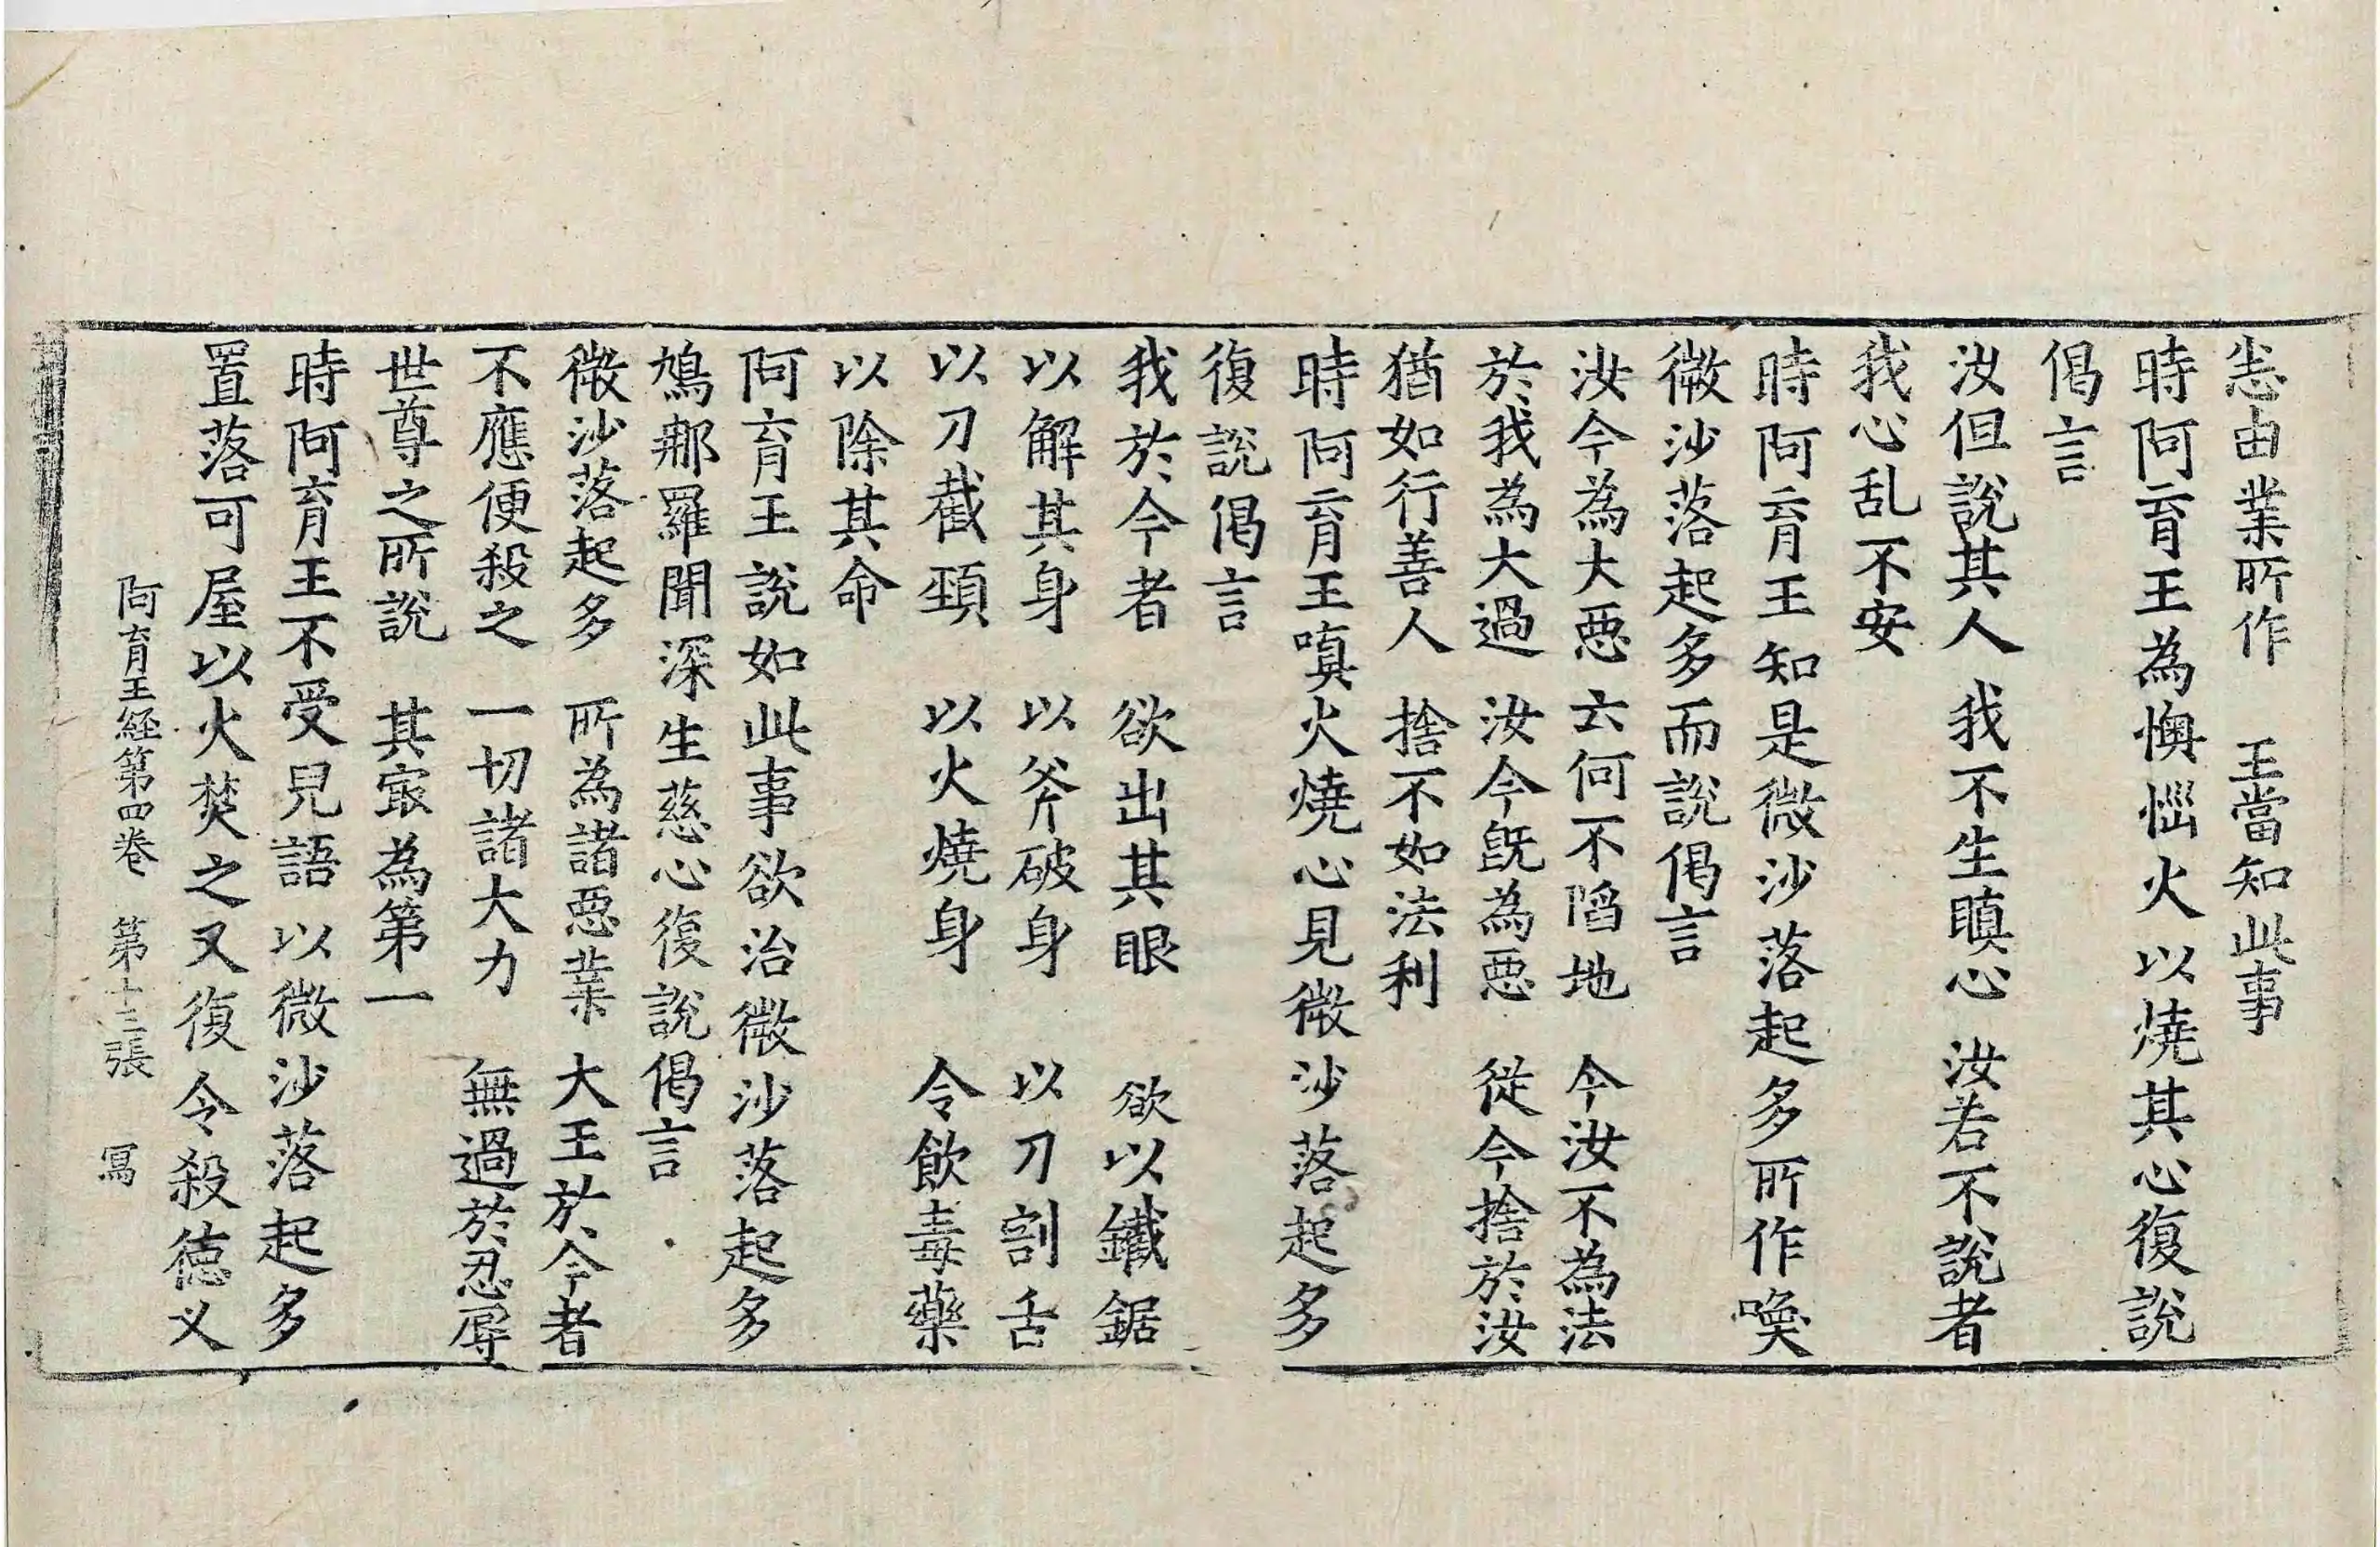 恙由業所作　王當知此事
時阿育王為懊惱火以燒其心復說
偈言
汝但說其人　我不生瞋心　汝若不說者
我心乱不安
時阿育王知是微沙落起多所作喚
微沙落起多而說偈言
汝今為大惡　云何不陷地　今汝不為法
於我為大過　汝今旣為惡　從今捨於汝
猶如行善人　捨不如法利
時阿育王嗔火燒心見微沙落起多
復說偈言
我於今者　欲出其眼　欲以鐵鋸
以解其身　以斧破身　以刀割舌
以刀截頸　以火燒身　令飲毒藥
以除其命
阿育王說如此事欲治微沙落起多
鳩那羅聞深生慈心復說偈言
微沙落起多　所為諸惡業　大王於今者
不應便殺之　一切諸大力　無過於忍辱
世尊之所說　其㝡為第一
時阿育王不受兒語以微沙落起多
置落可屋以火焚之又復令殺德叉
阿育王経第四卷　第十三張　冩